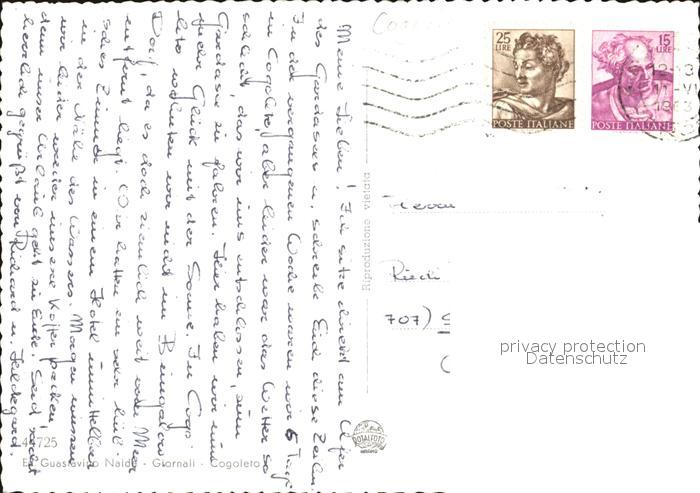 Meine Lieben! Ich sitze direkt am Ufer
des Gardasees u. schreibe Euch diese Zeilen.
In der vergangenen Woche waren wir 6 Tage
in Cogoleto, aber leider war das Wetter so
schlecht, dass wir uns entschlossen, zum
Gardasee zu fahren. Hier haben wir nun
mehr Glück mit der Sonne. In Cogo-
leto wohnten wir nicht im Bungalow
Dorf, da es doch ziemlich weit vom Meer
entfernt liegt. Wir hatten ein sehr hüb-
sches Zimmer in einem Hotel unmittelbar
in der Nähe des Wassers. Morgen müssen
wir leider wieder unsere Koffer packen,
denn unser Urlaub geht zu Ende. Seid recht
herzlich gegrüßt von Richard u. Hildegard.
Riproduzione vietata
25 LIRE
POSTE ITALIANE
15 LIRE
POSTE ITALIANE
Herrn
707)
privacy protection
Datenschutz
ROTALFOTO
MILANO
Giornali - Cogoleto